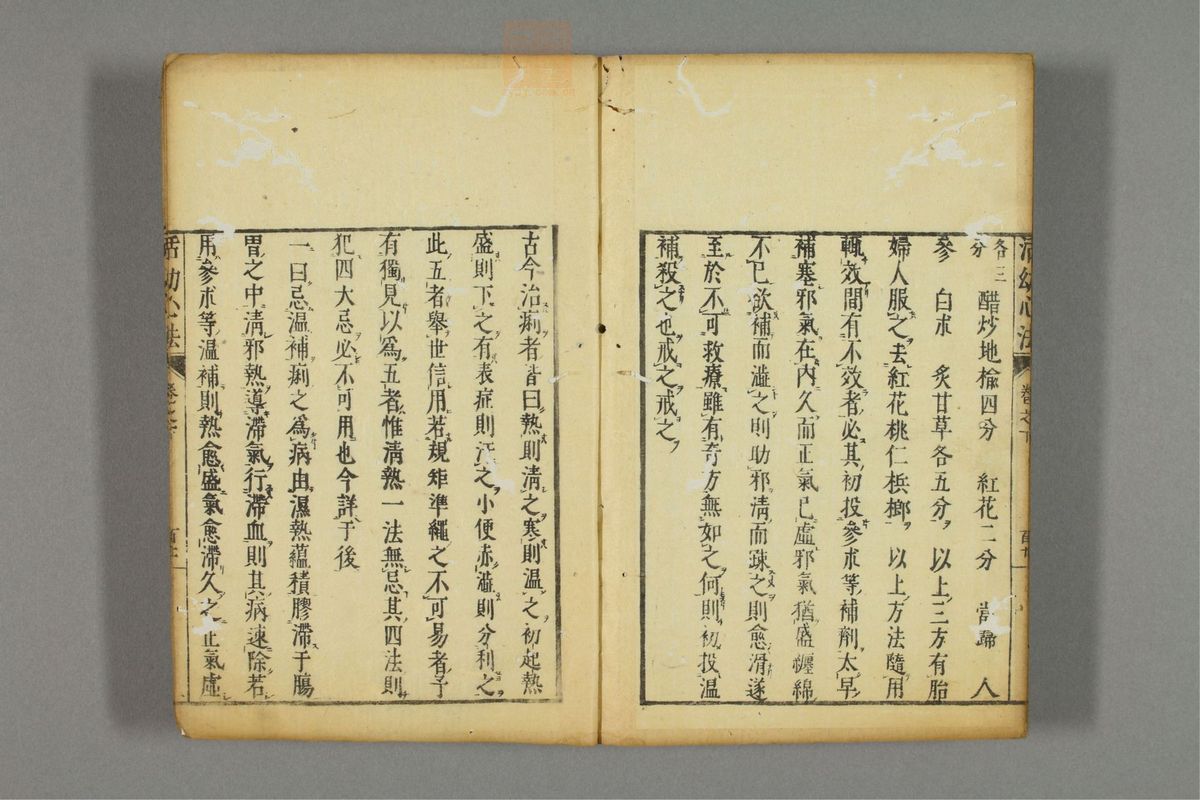 活幼心法
卷之下
各三分 醋炒地榆四分 紅花二分 當歸 人
參 白朮 炙甘草各五分 以上三方有胎
婦人服之去紅花桃仁梹榔 以上方法隨用
輒效間有不效者必其初投參朮等補劑太早
補塞邪氣在內久而正氣已虛邪氣猶盛纏綿
不已欲補而澁之則助邪清而疎之則愈滑遂
至於不可救療雖有奇方無如之何則初投溫
補殺之也戒之戒之
古今治痢者皆曰熱則清之寒則温之初起熱
盛則下之有表症則汗之小便赤澁則分利之
此五者舉世信用若規矩準繩之不可易者予
有獨見以爲五者惟清熱一法無忌其四法則
犯四大忌必不可用也今詳于後
一曰忌温補痢之爲病由濕熱蘊積膠滯于腸
胃之中清邪熱導滯氣行滯血則其病速除若
用參朮等温補則熱愈盛氣愈滯久之正氣虛
活幼心法
卷之下